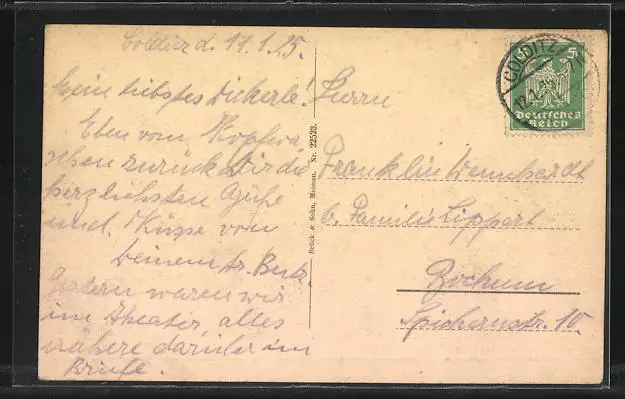 Colditz d. 11.1.25.
Mein liebstes Dickerle!
Eben vom Kopfwa
schen zurück Dir die
herzlichsten Grüße
und Küsse von
Deinem tr. Butz.
Gestern waren wir
im Theater, alles
nähere darüber im
Briefe.
Brück & Sohn, Meissen. Nr. 22523.
Herrn
Franklin
b. Familie Lippert
Bochum
Spichernstr. 10.
COLDITZ
5
Deutsches
Reich